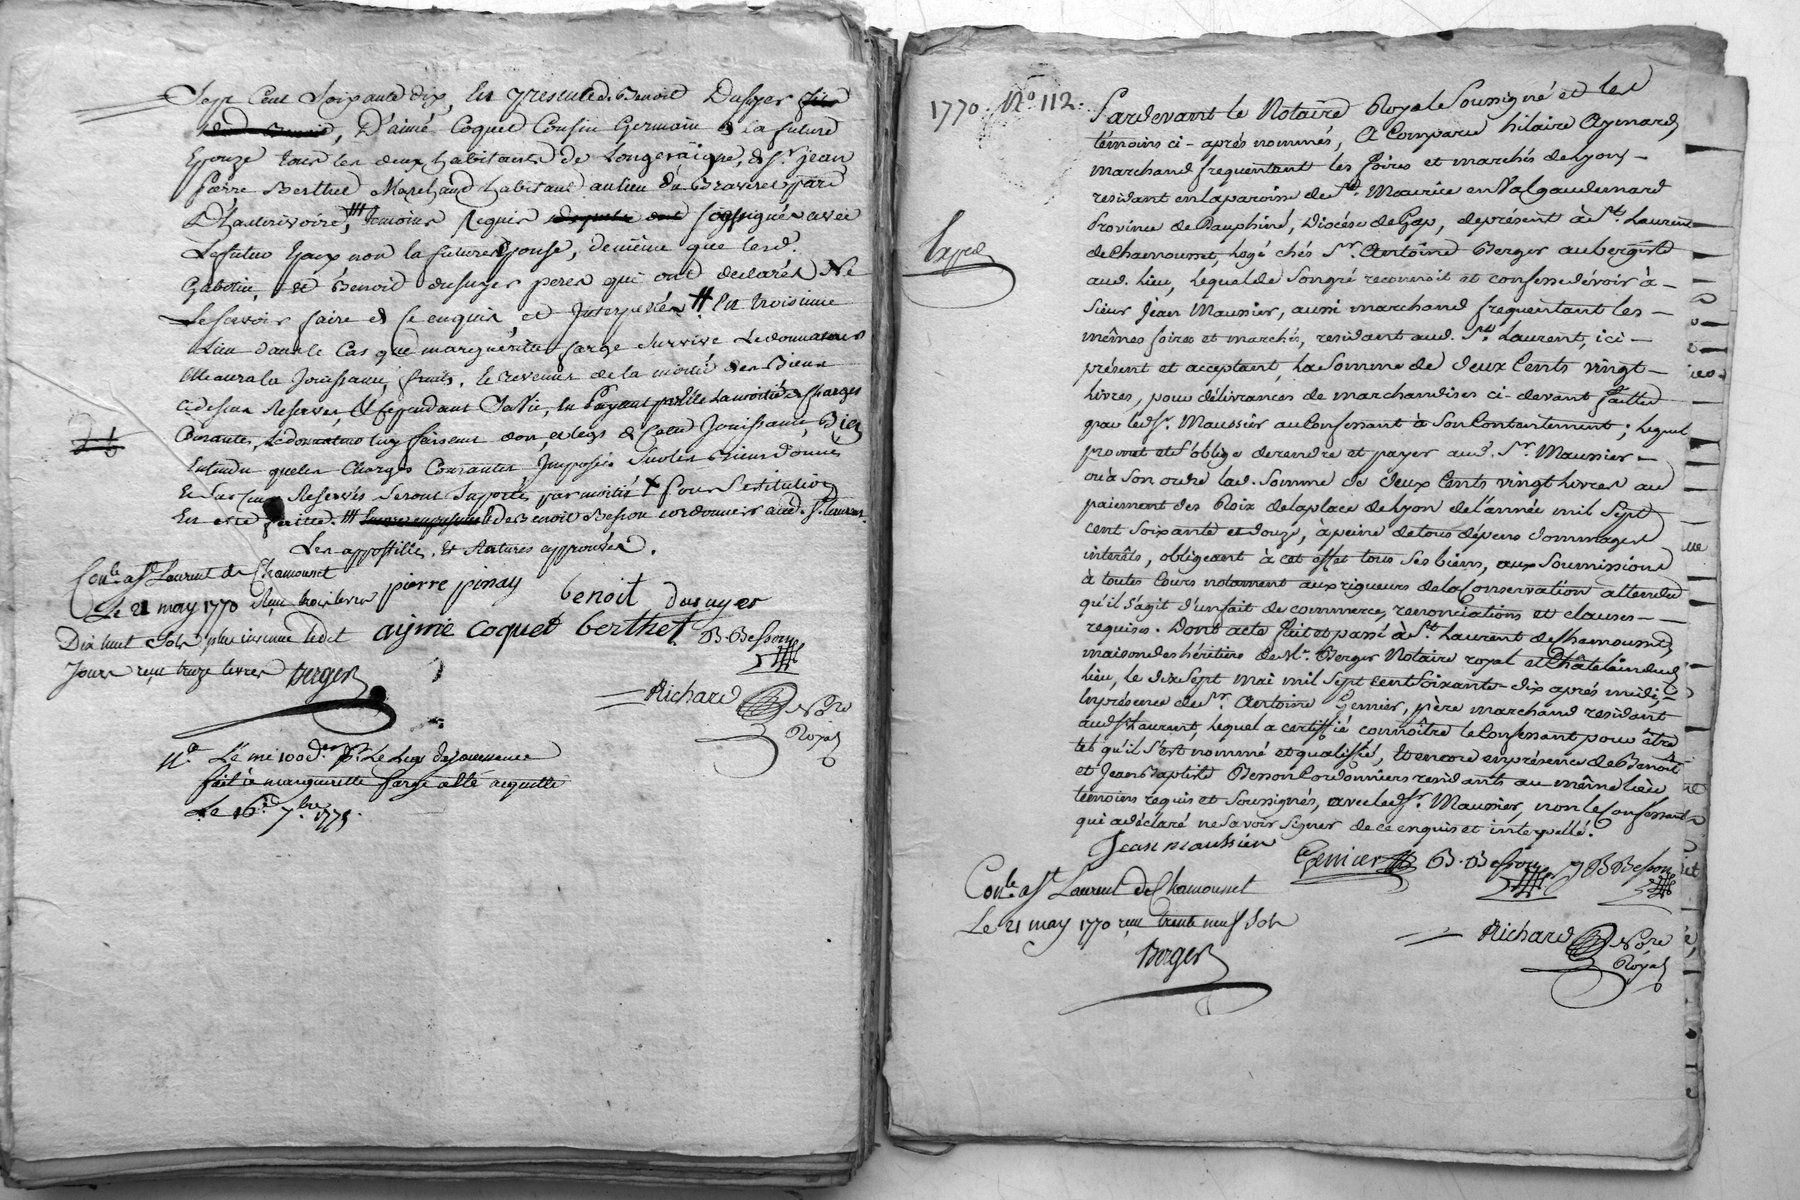 Sept Cent Soixante dix, En presence de Benoit Dusuyer
D'aimé Coquet Cousin Germain de la future
Epouze tous les deux habitants de Longesaigne, & Sr. jean
pierre Berthet Marchand habitant au lieu du
D'hauterivoire, ### temoins Requis soussignés avec
Le futur Epoux non la future Epouse, de même que lesd.
Benoit dusuyer peres qui ont declarés Ne
Le sçavoir faire de ce enquis, et Interpellés # En troisieme
Lieu dans le Cas que marguerite farge survive Le donnateur
Elle aura la Jouissance, fruits, & revenus de la moitié des Biens
cy dessus Reservés, & cependant sa Vie, En payant par Elle La moitié des Charges
Courantes, Le donnateur luy faisant don, et legs de Cette Jouissance, Bien
Entendu que les Charges Courantes Imposées sur les Biens donnés
Et sur ceux Reservés seront suportés par moitié X pour
En été faitte. ### de Benoit Besson cordonnier aud. St. Laurent.
Les appostilles, & ratures approuvés.
Conlé a St Laurent de Chamousset
Le 21 may 1770 Reçu trois livres
Dix huit sols plus insinué ledit
Jour reçu treze livres
pierre pinay
benoit dusuyer
aymé coquet berthet B Besson
Berger
Richard Nore
Royal
Na. Le me 100d. pr. Le Legs de jouissance
fait à marguerite farge a été acquitté
Le 16 7bre 1775.
1770. No. 112.
Pardevant le Notaire Royal Soussigné et les
témoins ci-aprés nommés, a Comparu hilaire Aymard
marchand frequentant les foires et marchés de Lyon,
residant en la paroisse de St. Maurice en Valgaudemard
Province de Dauphiné, Diocése de Gap, de présent à St. Laurent
de Chamousset, logé chés Sr. Antoine Berger aubergiste
aud. lieu, lequel de son gré reconnoit et confesse dévoir à
sieur Jean Maussier, aussi marchand frequentant les
mêmes foires et marchés, residant aud. St. Laurent, ici
présent et acceptant, La Somme de deux Cents vingt
livres, pour délivrances de marchandises ci-devant faittes
par led. Sr. Maussier au Confessant à Son Contentement; lequel
promet et s'oblige de rendre et payer aud. Sr. Maussier
ou à Son ordre lad. Somme de deux Cents vingt livres au
paiement des Rois de la place de Lyon de l'année mil Sept
cent Soixante et douze, à peine de tous dépens dommages
interêts, obligeant à cet effet tous Ses biens, aux Soumissions
à toutes Cours notament aux rigueurs de la Conservation attendu
qu'il s'agit d'un fait de commerce, renonciations et clauses
requises. Dont acte fait et passé à St. Laurent de Chamousset,
maison des héritiers de Me. Berger Notaire royal et Châtelain dud.
lieu, le dix Sept mai mil Sept cent Soixante-dix aprés midi,
En présence de Sr. Antoine Genier, pére marchand residant
aud. St. Laurent, lequel a certiffié connoître le Confessant pour être
tel qu'il s'est nommé et qualiffié, et encore en présence de Benoit
et Jean Baptiste Besson Cordonniers residants au même lieu
témoins requis et Soussignés, avec led. Sr. Maussier, non le Confessant
qui a déclaré ne Savoir Signer de ce enquis et interpellé.
Jean maussier
Genier B. Besson J B Besson
Conlé a St Laurent de Chamousset
Le 21 may 1770 reçu trente neuf sols
Berger
Richard Nore
Royal